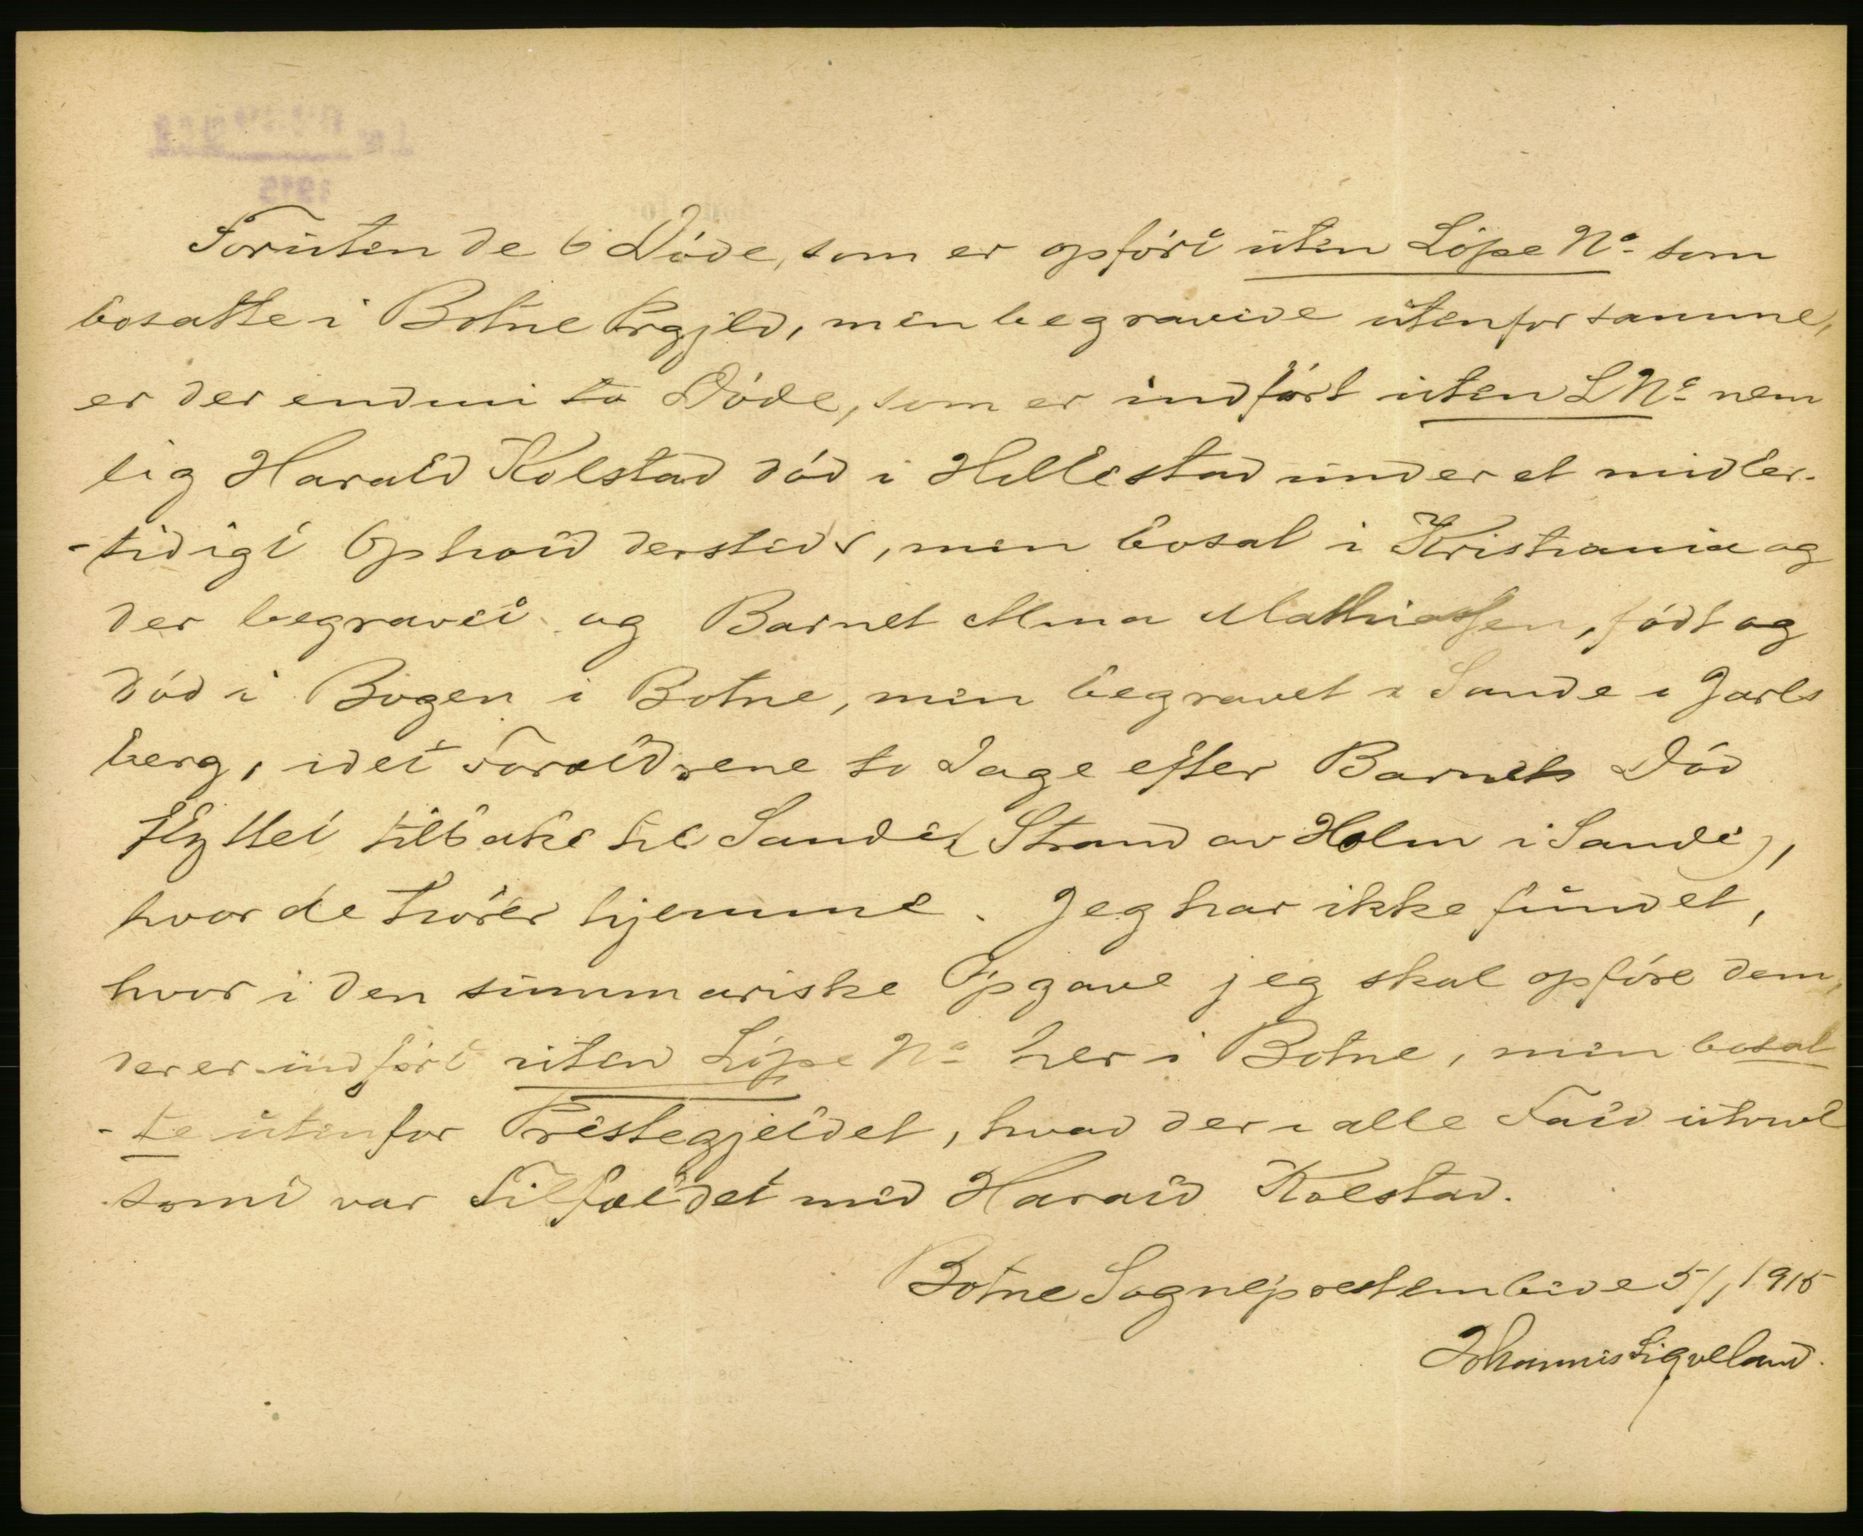 Foruten de 6 Døde, som er opført uten Løpe No. som
bosatte i Botne Prgjld, men begravede utenfor samme,
er der endnu to Døde, som er indført uten L No. nem
lig Harald Kolstad død i Hillestad under et midler-
-tidigt Ophold dersteds, men bosat i Kristiania og
der begravet og Barnet Alma Mathiassen, født og
død i Bogen i Botne, men begravet i Sande i Jarls
berg, idet Forældrene to Dage efter Barnets Død
flyttet tilbake til Sande (Strand av Holm i Sande),
hvor de hører hjemme. Jeg har ikke fundet,
hvor i den summariske Opgave jeg skal opføre dem,
der er indført uten Løpe No. her i Botne, men bosat
-te utenfor Prestegjeldet, hvad der i alle Fald utvivl
somt var Tilfældet med Harald Kolstad.
Botne Sogneprestembede 5/1 1915
Johannes Sigveland.
1915